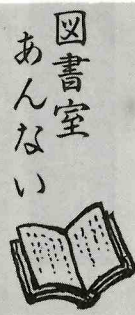 図書室
あんない